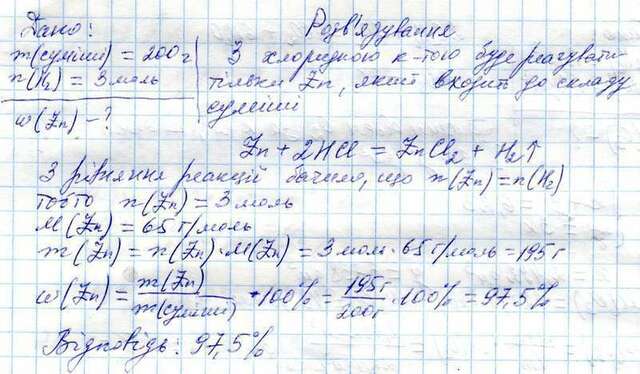 Дано:
m(суміші) = 200г
n(H₂) = 3 моль
w(Zn) - ?
Розв'язування
З хлоридною к-тою буде реагувати
тільки Zn, який входить до складу
суміші
Zn + 2HCl = ZnCl₂ + H₂↑
З рівняння реакції бачимо, що n(Zn) = n(H₂)
тобто n(Zn) = 3 моль
M(Zn) = 65 г/моль
m(Zn) = n(Zn)·M(Zn) = 3 моль · 65 г/моль = 195 г
w(Zn) = m(Zn)/m(суміші) · 100% = 195г/200г · 100% = 97,5%
Відповідь: 97,5%